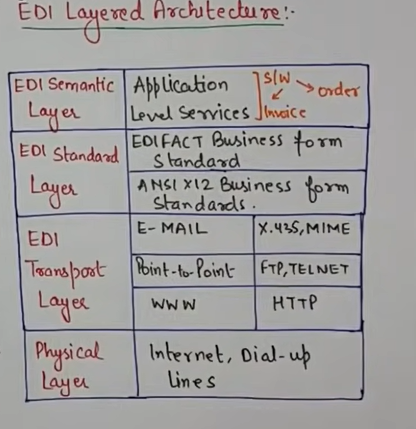 EDI Layered Architecture:-
EDI Semantic Layer
Application Level Services
S/W
order
Invoice
EDI Standard Layer
EDIFACT Business form Standard
ANSI X12 Business form Standards.
EDI Transport Layer
E-MAIL
X.435, MIME
Point-to-Point
FTP, TELNET
WWW
HTTP
Physical Layer
Internet, Dial-up lines